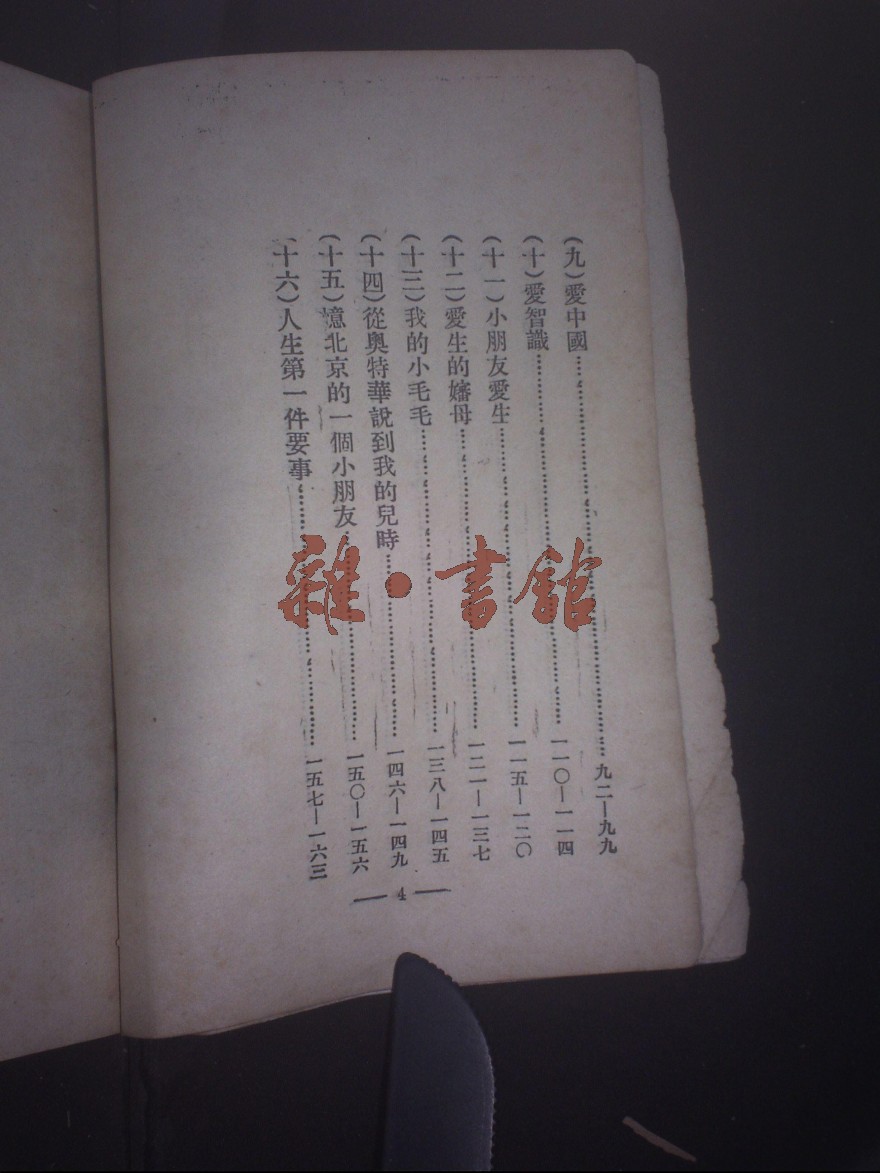 (九)愛中國……九二—九九
(十)愛智識……一一〇—一一四
(十一)小朋友愛生……一一五—一二〇
(十二)愛生的嬸母……一二一—一三七
(十三)我的小毛毛……一三八—一四五
(十四)從奧特華說到我的兒時……一四六—一四九
(十五)憶北京的一個小朋友……一五〇—一五六
(十六)人生第一件要事……一五七—一六三
— 4 —
雜·書館